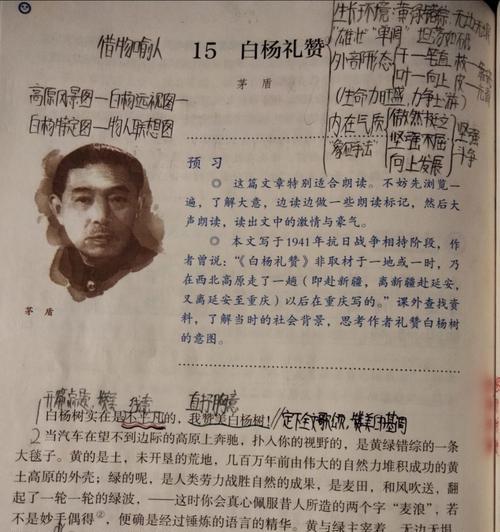 借物喻人
15 白杨礼赞
茅盾
高原风景图—白杨远视图—
白杨特定图—物人联想图
生长环境:黄绿错综,无边无垠
雄壮 "单调" 坦荡如砥
外部形态
干一笔直
叶一向上
皮一
(生命力旺盛,力争上游)
内在气质
傲然挺立
坚强不屈
向上发展
坚强
斗争
"象征手法"
预习
◎ 这篇文章特别适合朗读。不妨先浏览一
遍,了解大意,边读边做一些朗读标记,然后大
声朗读,读出文中的激情与豪气。
◎ 本文写于1941年抗日战争相持阶段,作
者曾说:"《白杨礼赞》非取材于一地或一时,乃
在西北高原走了一趟(即赴新疆,离新疆赴延安,
又离延安至重庆)以后在重庆写的。"课外查找资
料,了解当时的社会背景,思考作者礼赞白杨树
的意图。
茅盾
开篇点题, 线索 直抒胸臆
1白杨树实在是不平凡的,我赞美白杨树!
2 当汽车在望不到边际的高原上奔驰,扑入你的视野的,是黄绿错综的一条
大毯子。黄的是土,未开垦的荒地,几百万年前由伟大的自然力堆积成功的黄
土高原的外壳;绿的呢,是人类劳力战胜自然的成果,是麦田,和风吹送,翻
起了一轮一轮的绿波,——这时你会真心佩服昔人所造的两个字"麦浪",若
不是妙手偶得②,便确是经过锤炼的语言的精华。黄与绿主宰着,无边无垠